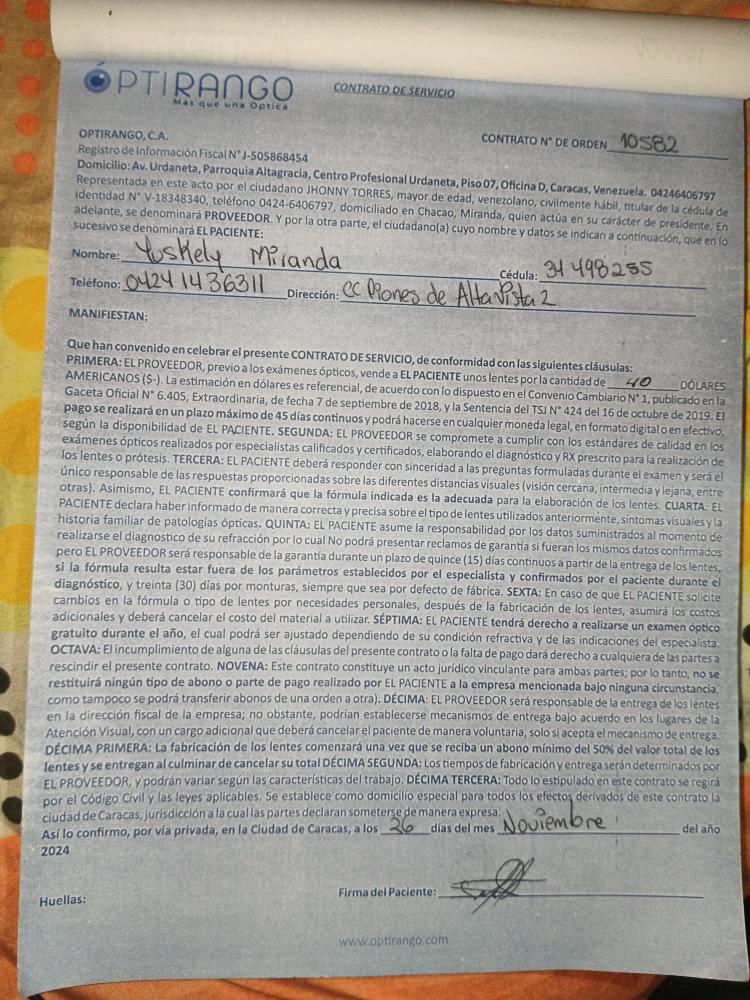 ÓPTIRANGO
Más que una Óptica
CONTRATO DE SERVICIO
OPTIRANGO, C.A.
CONTRATO N° DE ORDEN 10582
Registro de Información Fiscal N° J-505868454
Domicilio: Av. Urdaneta, Parroquia Altagracia, Centro Profesional Urdaneta, Piso 07, Oficina D, Caracas, Venezuela. 04246406797
Representada en este acto por el ciudadano JHONNY TORRES, mayor de edad, venezolano, civilmente hábil, titular de la cédula de
identidad N° V-18348340, teléfono 0424-6406797, domiciliado en Chacao, Miranda, quien actúa en su carácter de presidente. En
adelante, se denominará PROVEEDOR. Y por la otra parte, el ciudadano(a) cuyo nombre y datos se indican a continuación, que en lo
sucesivo se denominará EL PACIENTE:
Nombre: Yuskely Miranda Cédula: 31498255
Teléfono: 04241436311 Dirección: CC Piones de Alta Vista 2
MANIFIESTAN:
Que han convenido en celebrar el presente CONTRATO DE SERVICIO, de conformidad con las siguientes cláusulas:
PRIMERA: EL PROVEEDOR, previo a los exámenes ópticos, vende a EL PACIENTE unos lentes por la cantidad de 40 DÓLARES
AMERICANOS ($-). La estimación en dólares es referencial, de acuerdo con lo dispuesto en el Convenio Cambiario N° 1, publicado en la
Gaceta Oficial N° 6.405, Extraordinaria, de fecha 7 de septiembre de 2018, y la Sentencia del TSJ N° 424 del 16 de octubre de 2019. El
pago se realizará en un plazo máximo de 45 días continuos y podrá hacerse en cualquier moneda legal, en formato digital o en efectivo,
según la disponibilidad de EL PACIENTE. SEGUNDA: EL PROVEEDOR se compromete a cumplir con los estándares de calidad en los
exámenes ópticos realizados por especialistas calificados y certificados, elaborando el diagnóstico y RX prescrito para la realización de
los lentes o prótesis. TERCERA: EL PACIENTE deberá responder con sinceridad a las preguntas formuladas durante el examen y será el
único responsable de las respuestas proporcionadas sobre las diferentes distancias visuales (visión cercana, intermedia y lejana, entre
otras). Asimismo, EL PACIENTE confirmará que la fórmula indicada es la adecuada para la elaboración de los lentes. CUARTA: EL
PACIENTE declara haber informado de manera correcta y precisa sobre el tipo de lentes utilizados anteriormente, síntomas visuales y la
historia familiar de patologías ópticas. QUINTA: EL PACIENTE asume la responsabilidad por los datos suministrados al momento de
realizarse el diagnostico de su refracción por lo cual No podrá presentar reclamos de garantía si fueran los mismos datos confirmados
pero EL PROVEEDOR será responsable de la garantía durante un plazo de quince (15) días continuos a partir de la entrega de los lentes,
si la fórmula resulta estar fuera de los parámetros establecidos por el especialista y confirmados por el paciente durante el
diagnóstico, y treinta (30) días por monturas, siempre que sea por defecto de fábrica. SEXTA: En caso de que EL PACIENTE solicite
cambios en la fórmula o tipo de lentes por necesidades personales, después de la fabricación de los lentes, asumirá los costos
adicionales y deberá cancelar el costo del material a utilizar. SÉPTIMA: EL PACIENTE tendrá derecho a realizarse un examen óptico
gratuito durante el año, el cual podrá ser ajustado dependiendo de su condición refractiva y de las indicaciones del especialista.
OCTAVA: El incumplimiento de alguna de las cláusulas del presente contrato o la falta de pago dará derecho a cualquiera de las partes a
rescindir el presente contrato. NOVENA: Este contrato constituye un acto jurídico vinculante para ambas partes; por lo tanto, no se
restituirá ningún tipo de abono o parte de pago realizado por EL PACIENTE a la empresa mencionada bajo ninguna circunstancia,
como tampoco se podrá transferir abonos de una orden a otra). DÉCIMA: EL PROVEEDOR será responsable de la entrega de los lentes
en la dirección fiscal de la empresa; no obstante, podrían establecerse mecanismos de entrega bajo acuerdo en los lugares de la
Atención Visual, con un cargo adicional que deberá cancelar el paciente de manera voluntaria, solo si acepta el mecanismo de entrega.
DÉCIMA PRIMERA: La fabricación de los lentes comenzará una vez que se reciba un abono mínimo del 50% del valor total de los
lentes y se entregan al culminar de cancelar su total DÉCIMA SEGUNDA: Los tiempos de fabricación y entrega serán determinados por
EL PROVEEDOR, y podrán variar según las características del trabajo. DÉCIMA TERCERA: Todo lo estipulado en este contrato se regirá
por el Código Civil y las leyes aplicables. Se establece como domicilio especial para todos los efectos derivados de este contrato la
ciudad de Caracas, jurisdicción a la cual las partes declaran someterse de manera expresa.
Así lo confirmo, por vía privada, en la Ciudad de Caracas, a los 26 días del mes Noviembre del año
2024
Huellas:
Firma del Paciente:
www.optirango.com